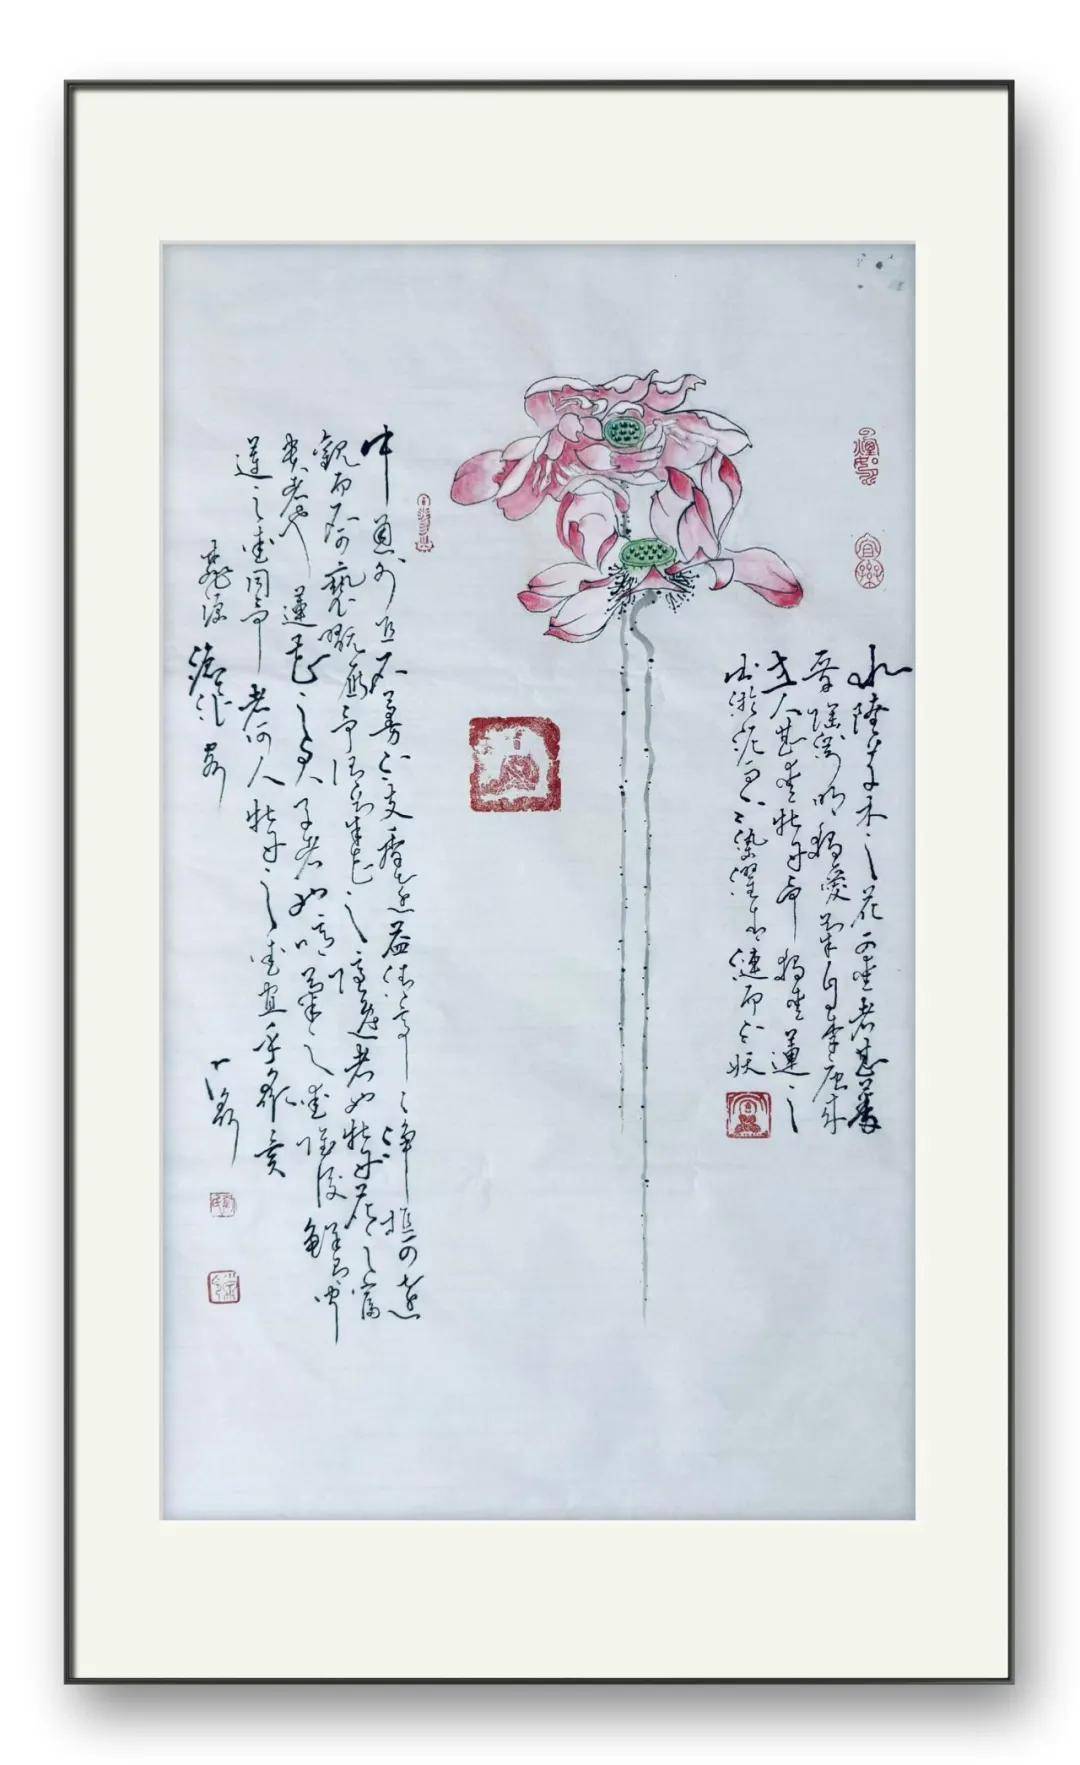 水陸草木之花可爱者甚蕃
晋陶渊明独爱菊自李唐来
世人甚爱牡丹予独爱蓮之
出淤泥而不染濯清漣而不妖
中通外直不蔓不支香遠益清亭亭净植可遠
觀而不可褻翫焉予谓菊花之隱逸者也牡丹花之富
贵者也蓮花之君子者也噫菊之爱陶後鲜有闻
蓮之爱同予者何人牡丹之爱宜乎众矣